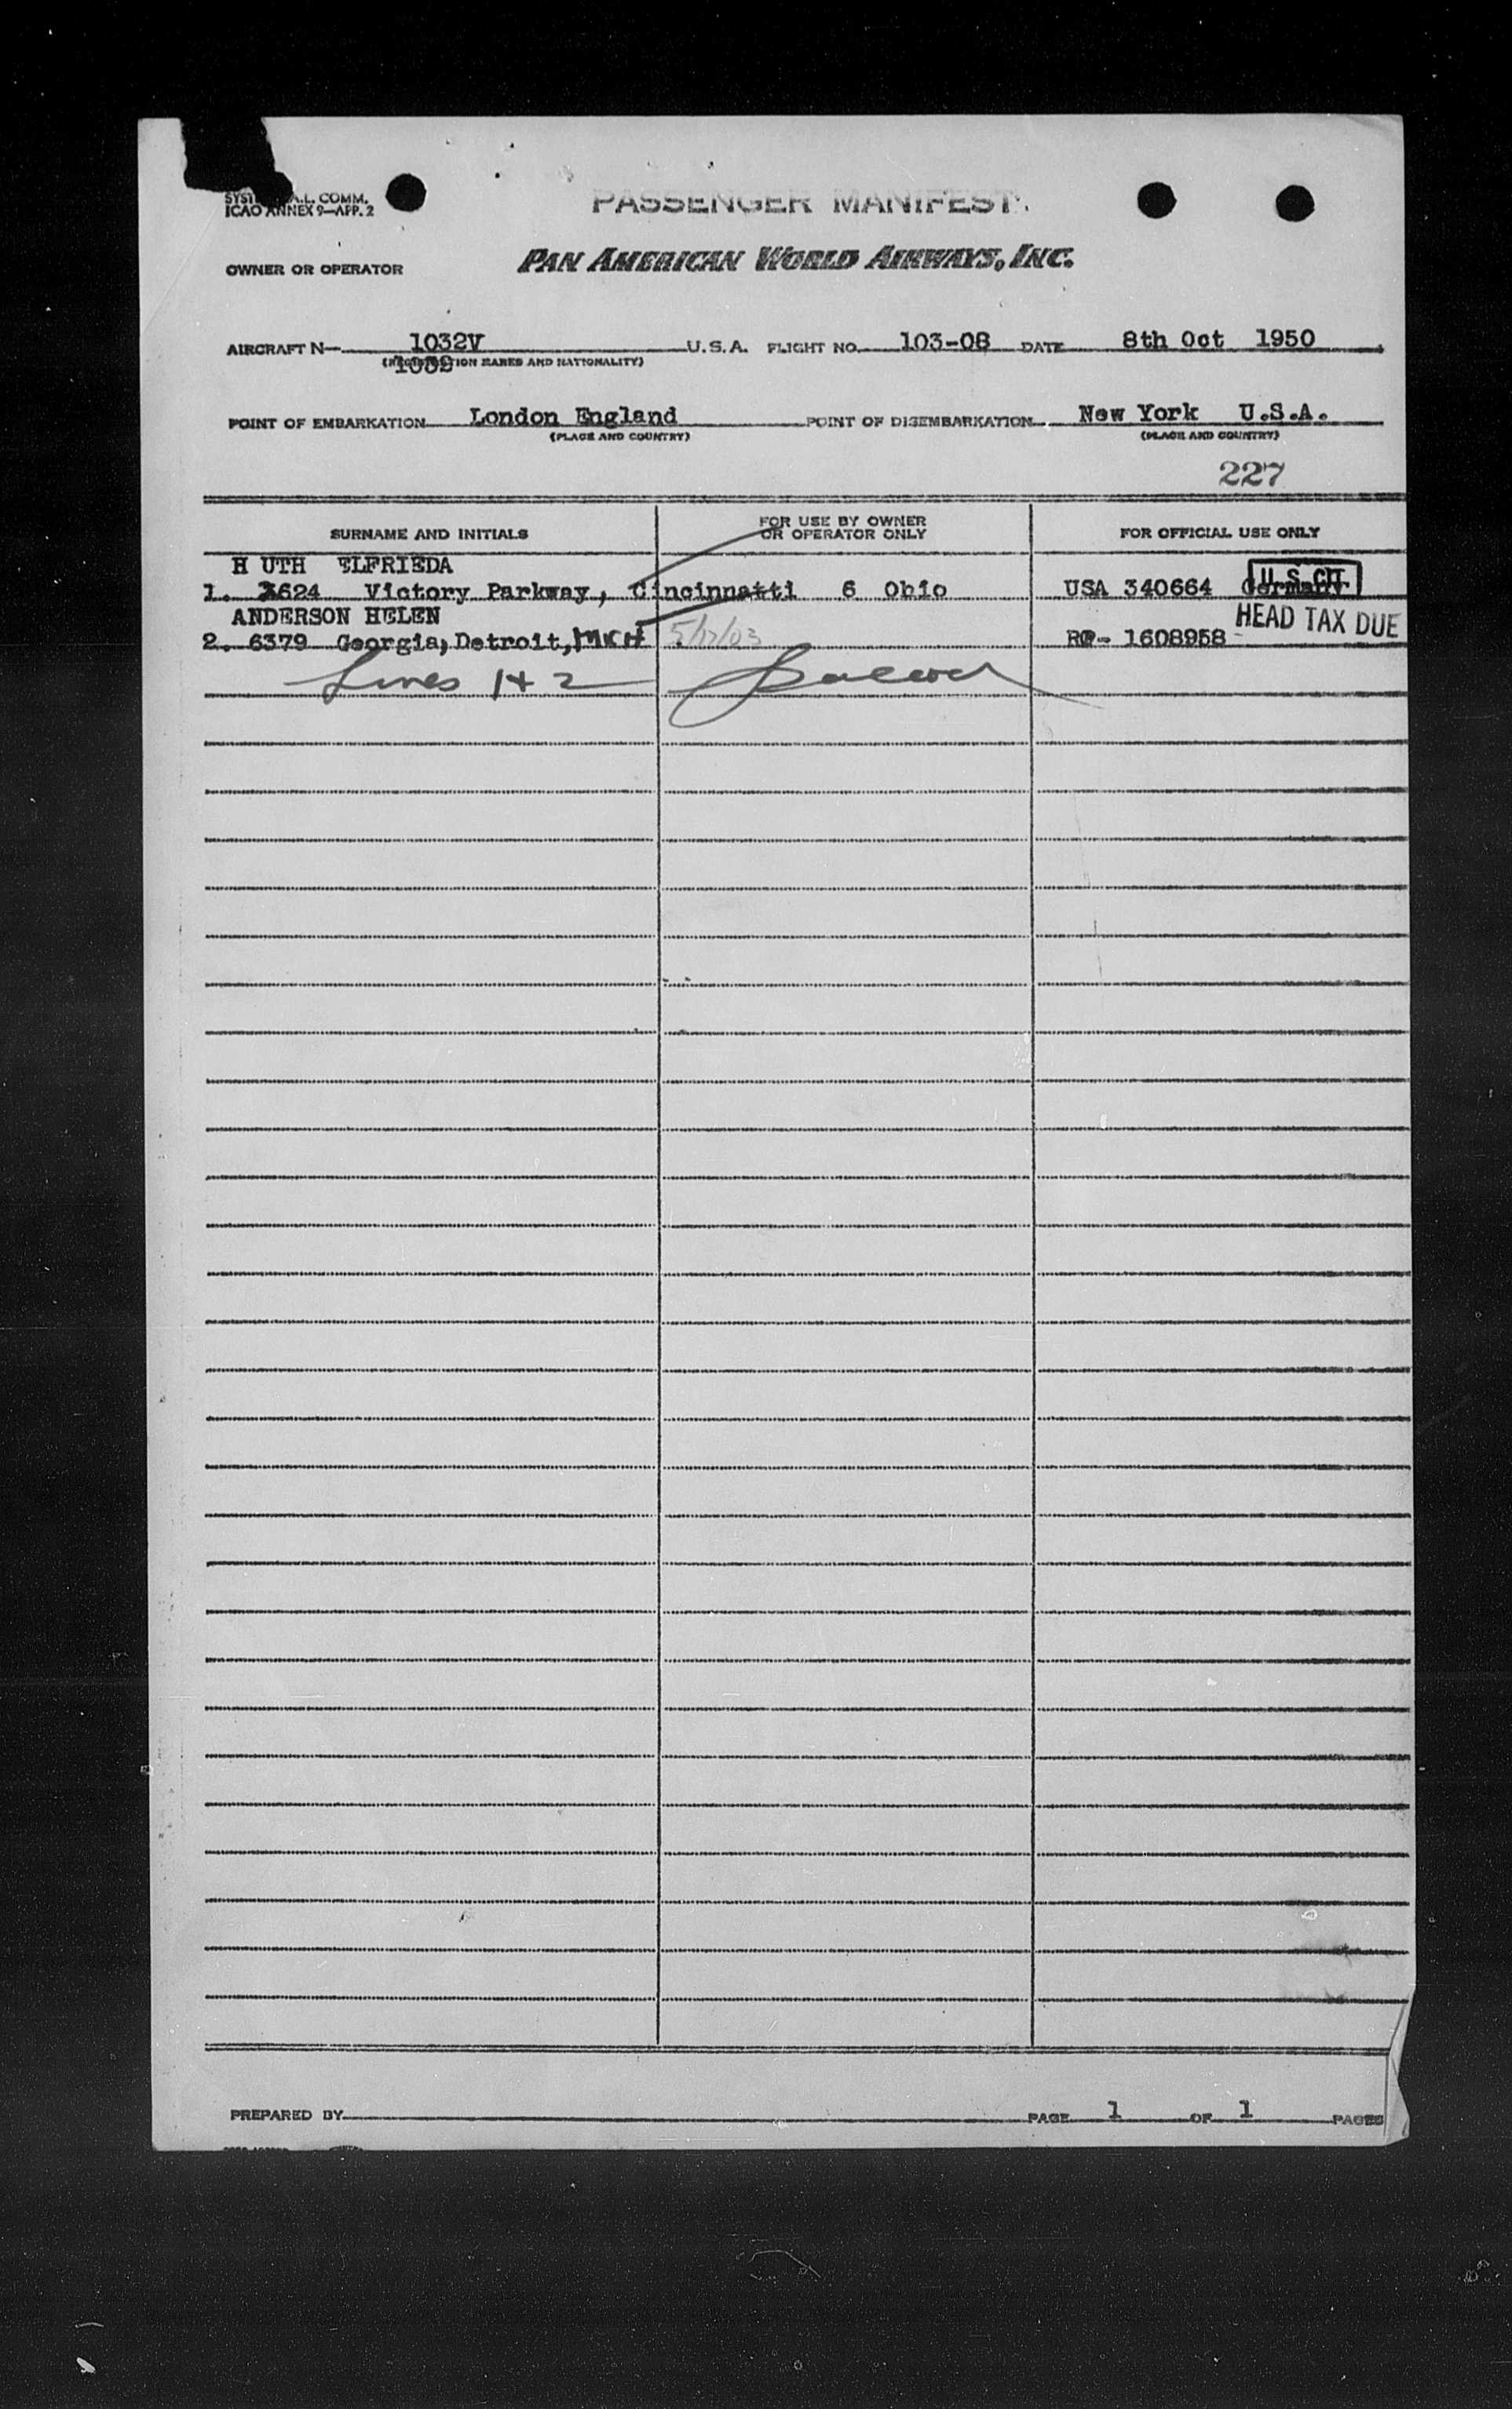 A.L. COMM.
ICAO ANNEX 9—APP. 2
PASSENGER MANIFEST
OWNER OR OPERATOR PAN AMERICAN WORLD AIRWAYS, INC.
AIRCRAFT N— 1032V U.S.A. FLIGHT NO. 103-08 DATE 8th Oct 1950
(REGISTRATION MARKS AND NATIONALITY)
POINT OF EMBARKATION London England POINT OF DISEMBARKATION New York U.S.A.
(PLACE AND COUNTRY) (PLACE AND COUNTRY)
227
SURNAME AND INITIALS FOR USE BY OWNER OR OPERATOR ONLY FOR OFFICIAL USE ONLY
H UTH ELFRIEDA
1. 3624 Victory Parkway, Cincinnatti 6 Ohio USA 340664 Germany U.S. CIT
ANDERSON HELEN HEAD TAX DUE
2. 6379 Georgia, Detroit, MICH 5/17/03 RP- 1608958
Lines 1+2
PREPARED BY PAGE 1 OF 1 PAGES